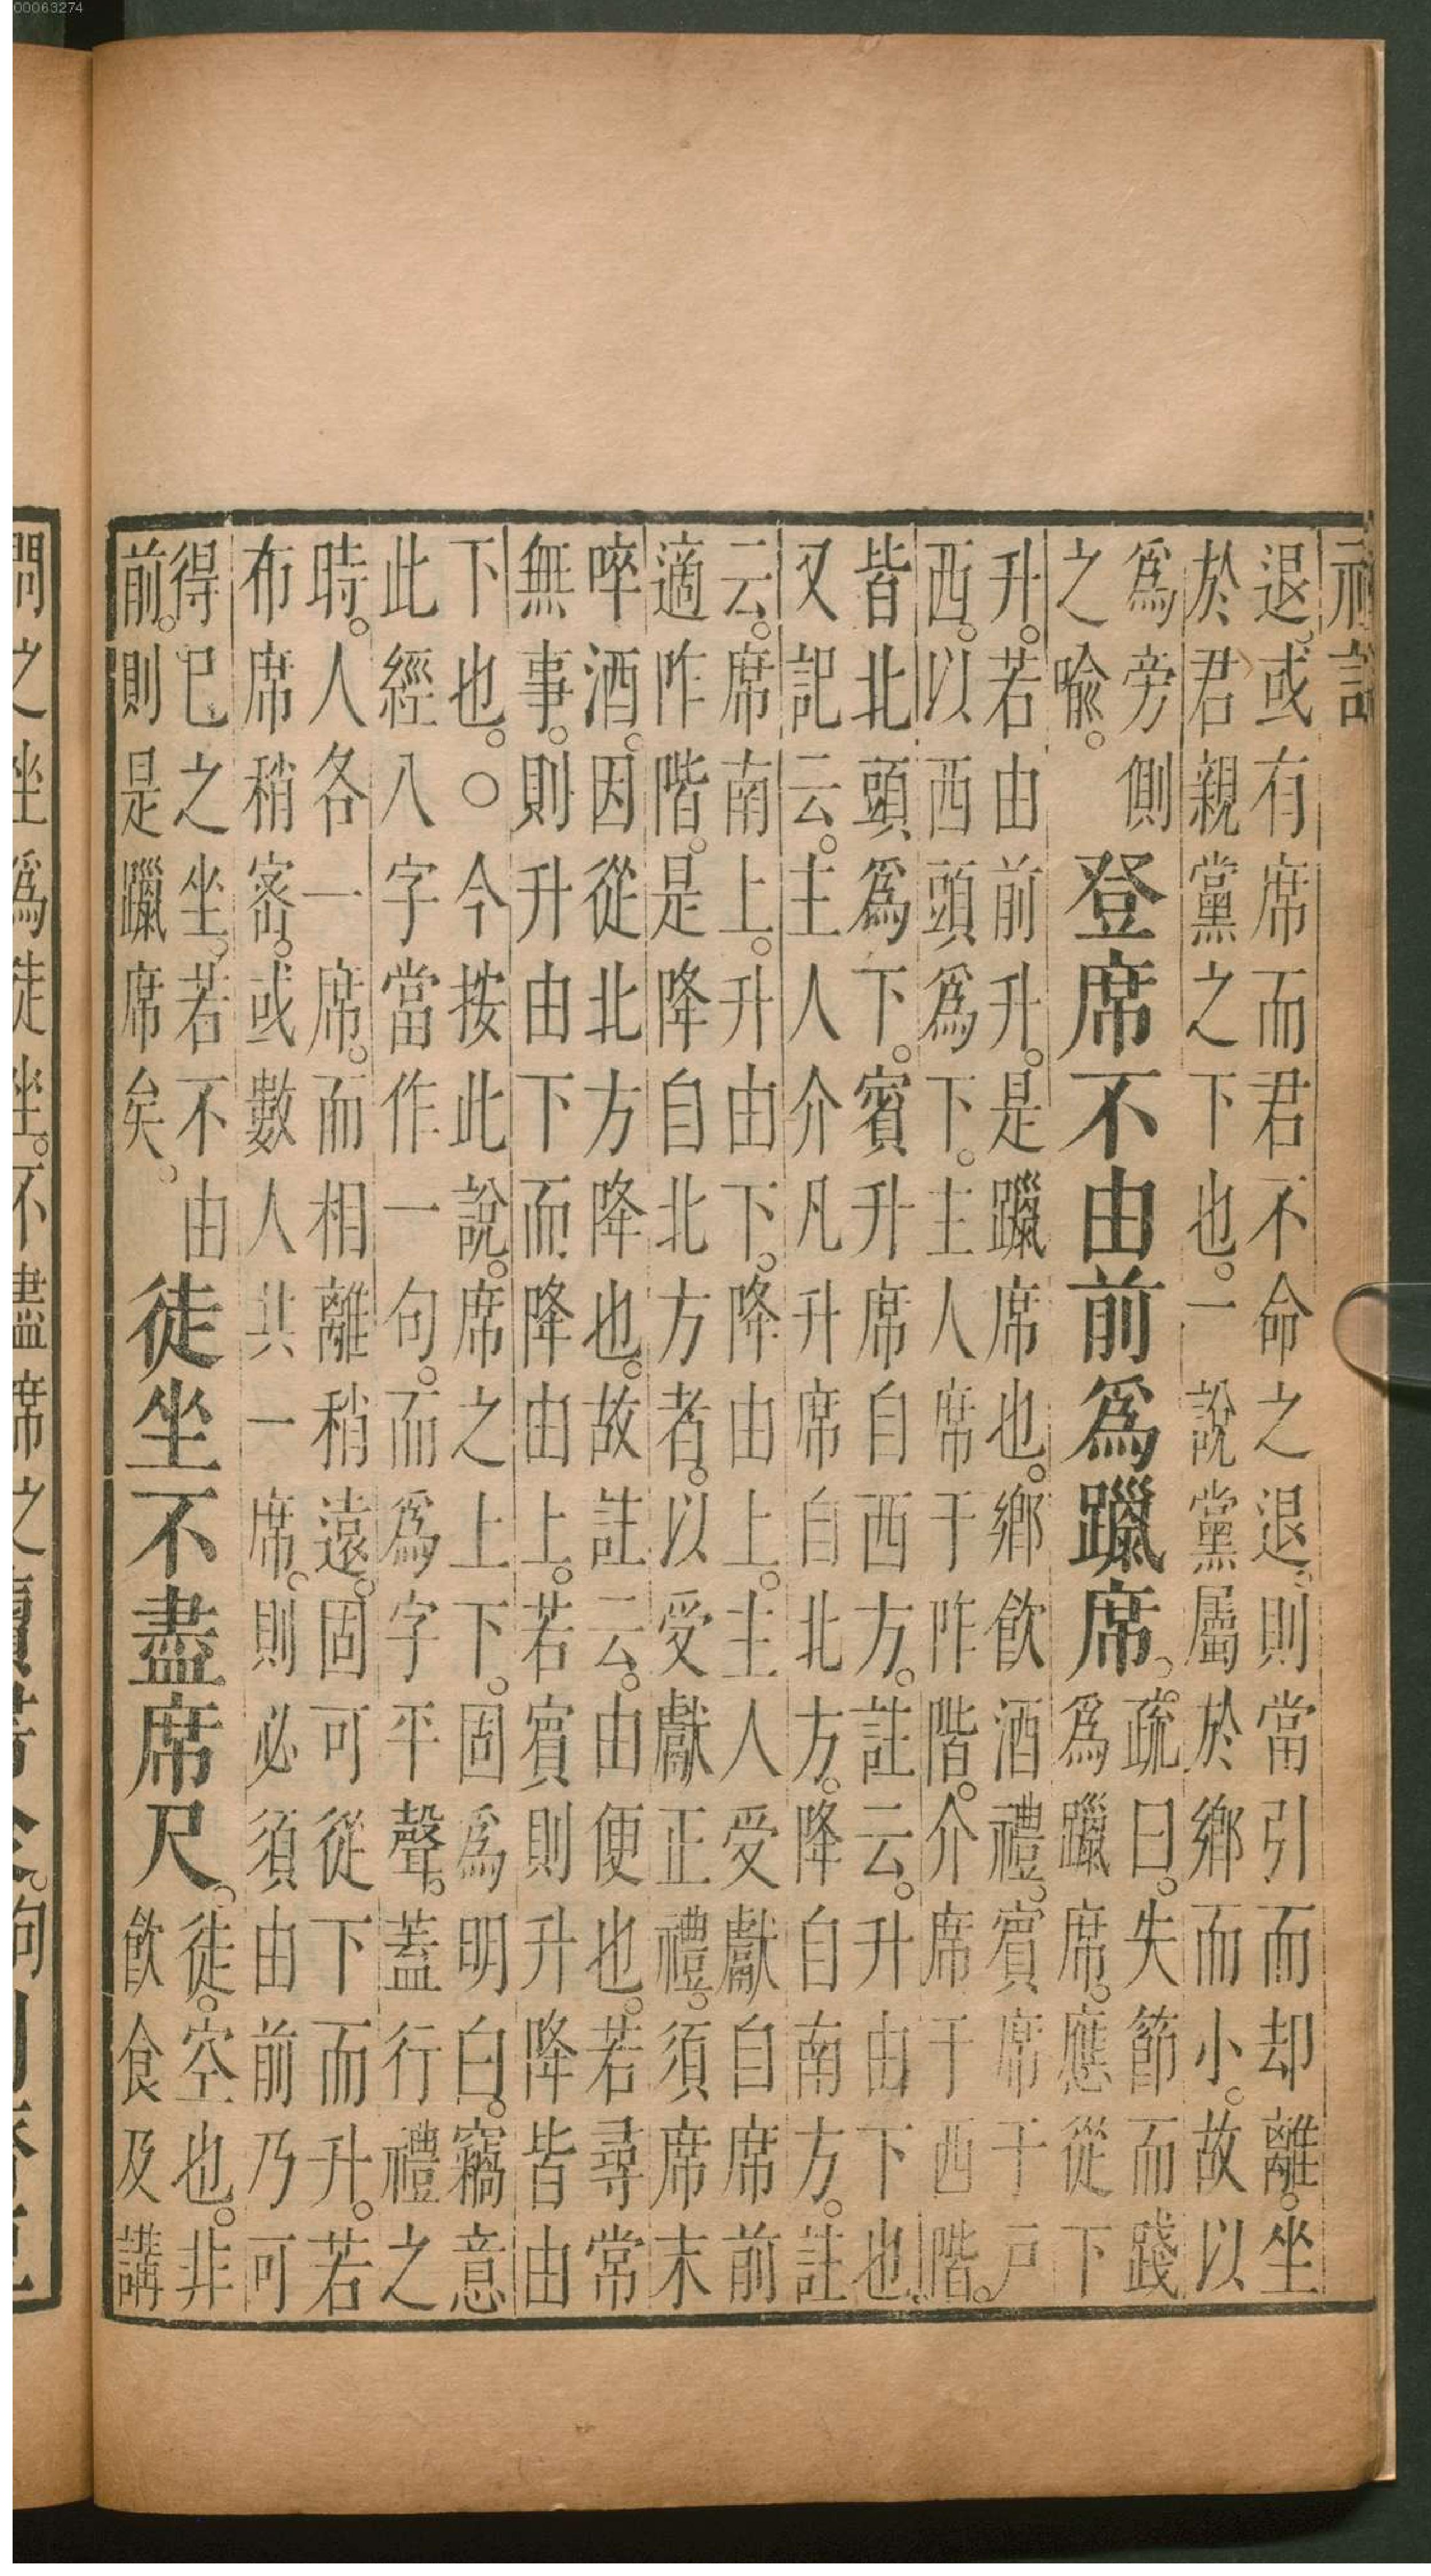 00063274
退。或有席而君不命之退。則當引而却離。坐
於君親黨之下也。一說黨屬於鄉而小。故以
爲旁側
之喻。
登席不由前爲躐席。
疏曰。失節而踐
爲躐席。應從下
升。若由前升。是躐席也。鄉飲酒禮。賓席于戸
西。以西頭爲下。主人席于阼階。介席于西階。
皆北頭爲下。賓升席自西方。註云。升由下也。
又記云。主人介凡升席自北方。降自南方。註
云。席南上。升由下。降由上。主人受獻自席前
適阼階。是降自北方者。以受獻正禮。須席末
啐酒。因從北方降也。故註云。由便也。若尋常
無事。則升由下而降由上。若賓則升降皆由
下也。○今按此說。席之上下。固爲明白。竊意
此經八字當作一句。而爲字平聲。蓋行禮之
時。人各一席。而相離稍遠。固可從下而升。若
布席稍密。或數人共一席。則必須由前乃可
得已之坐。若不由
前。則是躐席矣。
徒坐不盡席尺。
徒。空也。非
飲食及講
問之坐爲徒坐。不盡席之